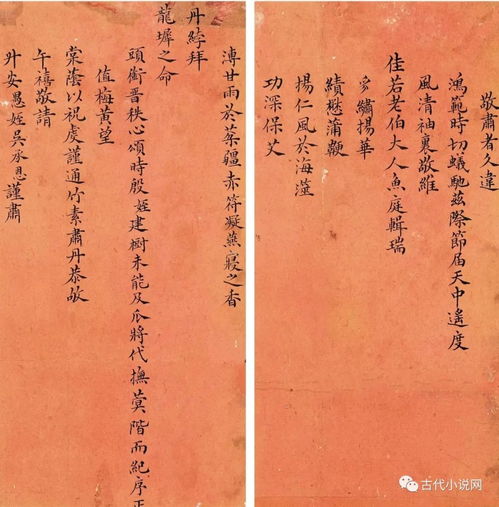 敬肅者久違
鴻範時切蟻馳茲際節届天中遙度
風清袖裏敬維
佳若老伯大人魚庭輯瑞
豸繡揚華
績懋蒲鞭
揚仁風於海澨
功深保艾
溥甘雨於疆赤符凝燕寢之香
丹綍拜
龍墀之命
頭銜晋秩心頌時殷姪建樹未能及瓜將代撫蓂階而紀序正
值梅黃望
棠蔭以祝虔謹通竹素肅丹恭敂
午禧敬請
升安愚姪吳承恩謹肅
古代小说网